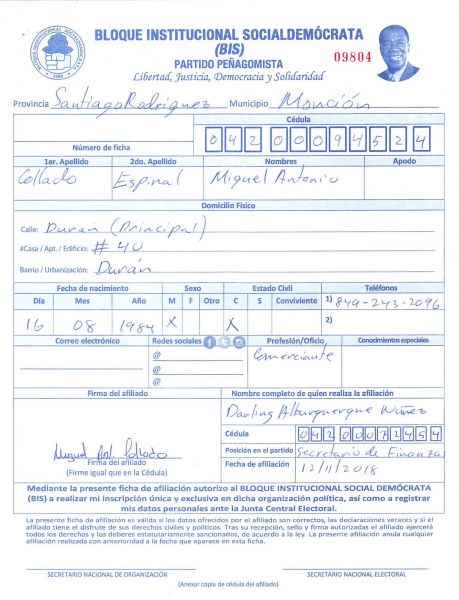 BLOQUE INSTITUCIONAL SOCIALDEMÓCRATA
(BIS)
PARTIDO PEÑAGOMISTA
Libertad, Justicia, Democracia y Solidaridad
09804
Provincia Santiago Rodriguez Municipio Monción
Cédula
Número de ficha 04200094524
1er. Apellido 2do. Apellido Nombres Apodo
Collado Espinal Miguel Antonio
Domicilio Físico
Calle: Durán (Principal)
#Casa / Apt. / Edificio: # 40
Barrio / Urbanización: Durán
Fecha de nacimiento Sexo Estado Civil Teléfonos
Día Mes Año M F Otro C S Conviviente 1) 849-243-2096
16 08 1984 X X 2)
Correo electrónico Redes sociales Profesión/Oficio Conocimientos especiales
@ Comerciante
@
@
Firma del afiliado Nombre completo de quien realiza la afiliación
Darling Alburquerque Nuñez
Cédula 04200072454
Miguel Ant. Collado Posición en el partido Secretario de Finanzas
Firma del afiliado Fecha de afiliación 12/11/2018
(Firme igual que en la Cédula)
Mediante la presente ficha de afiliación autorizo al BLOQUE INSTITUCIONAL SOCIAL DEMÓCRATA
(BIS) a realizar mi inscripción única y exclusiva en dicha organización política, así como a registrar
mis datos personales ante la Junta Central Electoral.
La presente ficha de afiliación es válida si los datos ofrecidos por el afiliado son correctos, las declaraciones veraces y si el
afiliado tiene el disfrute de sus derechos civiles y políticos. Tras su recepción, sello y firma autorizadas el afiliado ejercerá
todos los derechos y los deberes estatutariamente sancionados, de acuerdo a la ley. La presente afiliación anula cualquier
afiliación realizada con anterioridad a la fecha que aparece en esta ficha.
SECRETARIO NACIONAL DE ORGANIZACIÓN SECRETARIO NACIONAL ELECTORAL
(Anexar copia de cédula del afiliado)